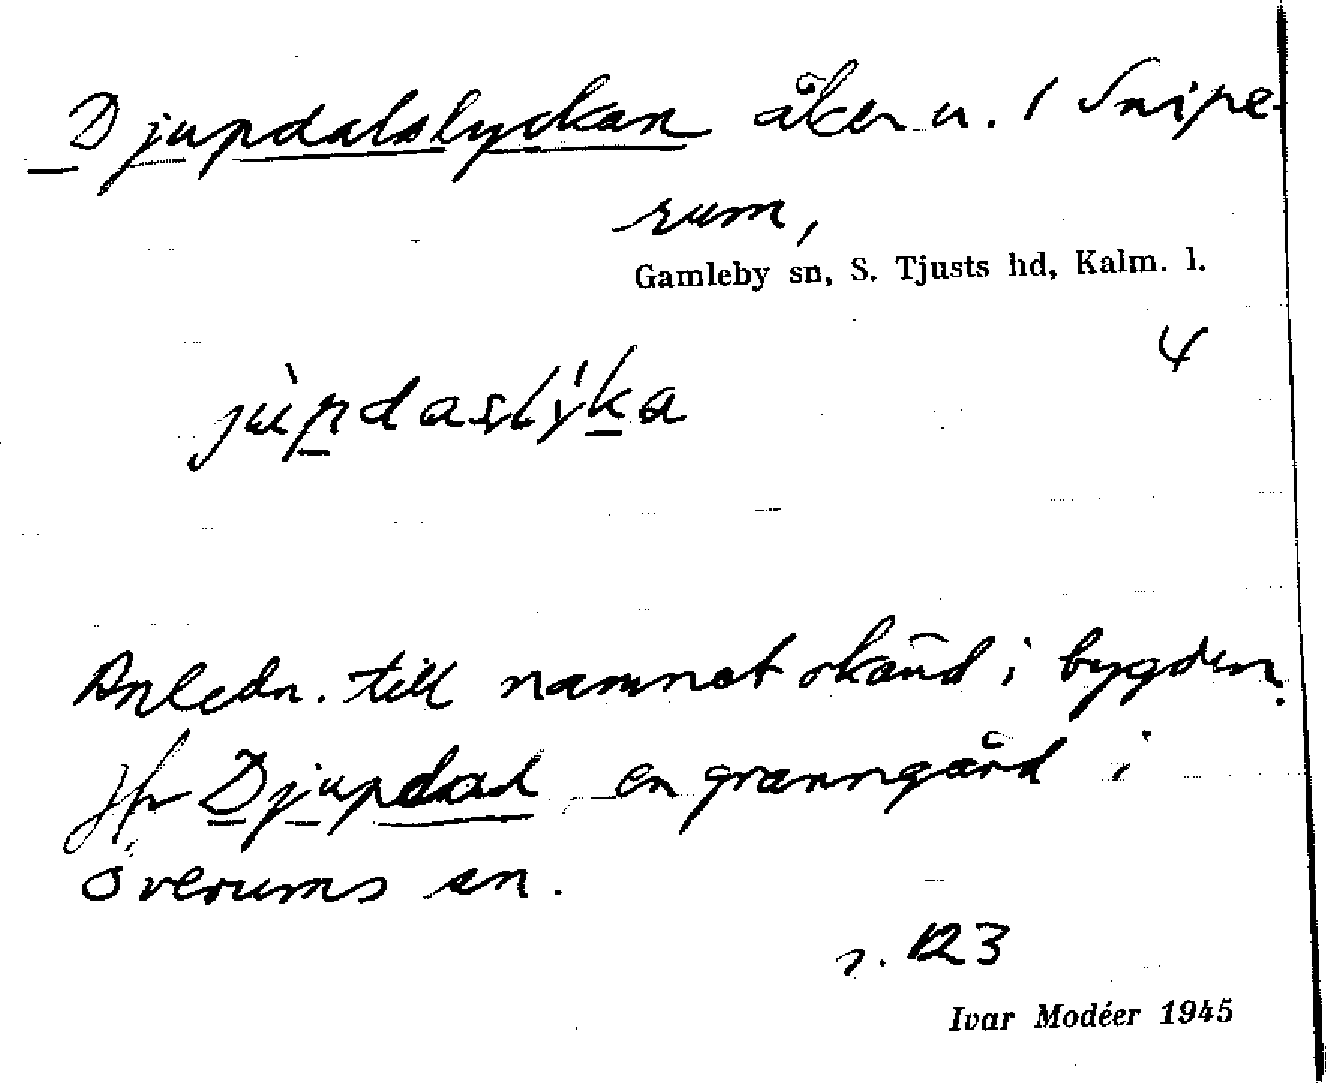 Djupdalslyckan åker u. 1 Snipe-
rum,
Gamleby sn, S. Tjusts hd, Kalm. l.
4
Anledn. till namnet okänd i bygden.
Jfr Djupdal en granngård i
Överums sn.
s. 123
Ivar Modéer 1945